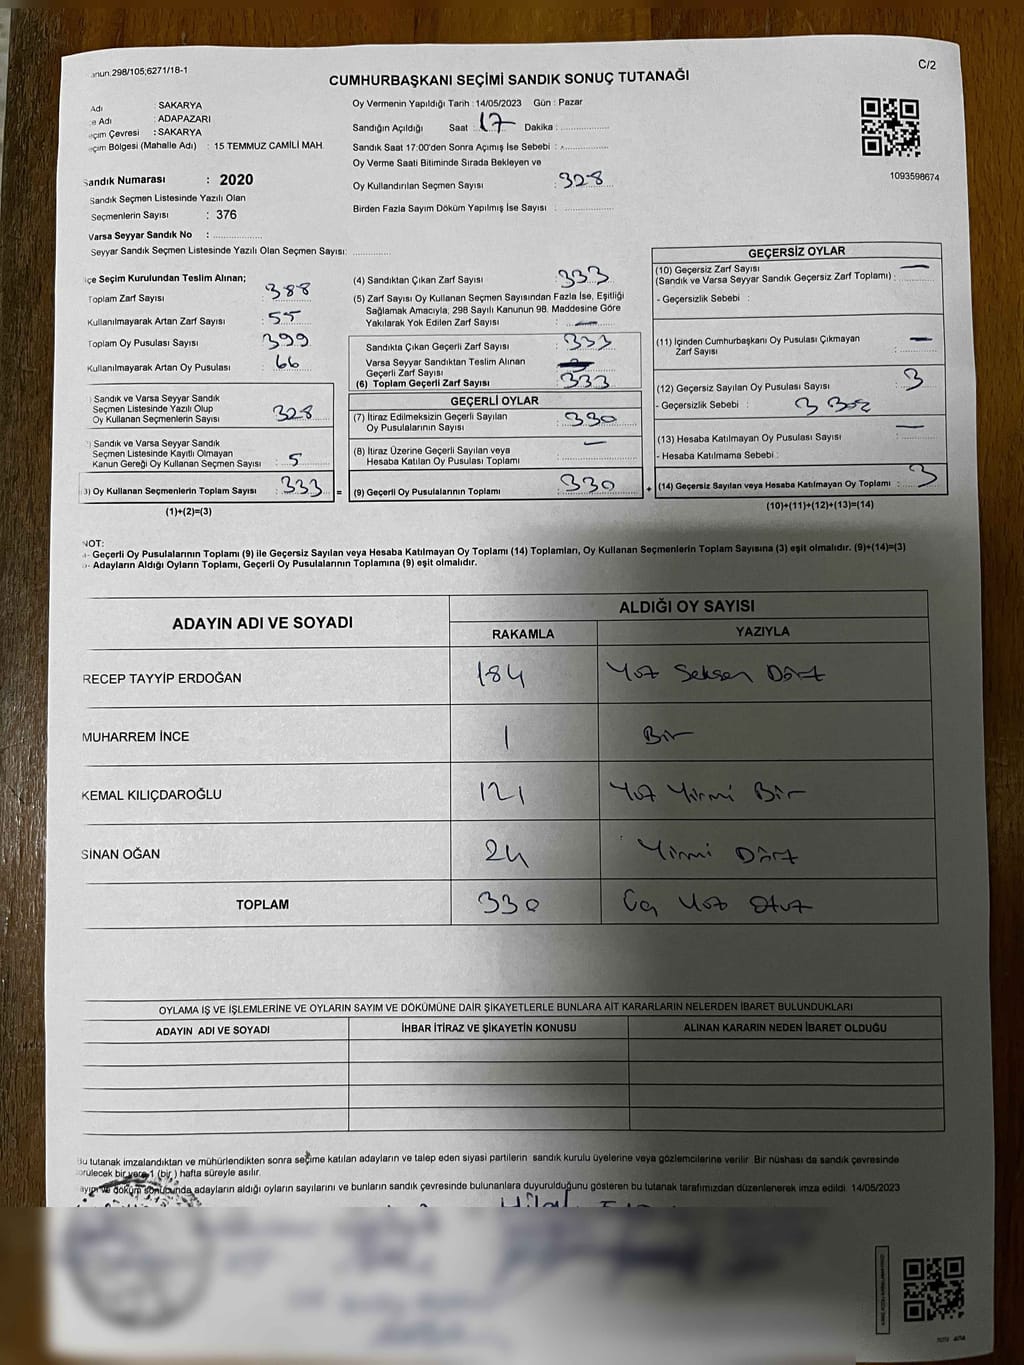 anun.298/105;6271/18-1
C/2
CUMHURBAŞKANI SEÇİMİ SANDIK SONUÇ TUTANAĞI
Adı : SAKARYA
e Adı : ADAPAZARI
eçim Çevresi : SAKARYA
eçim Bölgesi (Mahalle Adı) : 15 TEMMUZ CAMİLİ MAH.
Sandık Numarası : 2020
Sandık Seçmen Listesinde Yazılı Olan
Seçmenlerin Sayısı : 376
Varsa Seyyar Sandık No :
Seyyar Sandık Seçmen Listesinde Yazılı Olan Seçmen Sayısı:
Oy Vermenin Yapıldığı Tarih : 14/05/2023 Gün : Pazar
Sandığın Açıldığı Saat : 17 Dakika :
Sandık Saat 17:00'den Sonra Açımış İse Sebebi :
Oy Verme Saati Bitiminde Sırada Bekleyen ve
Oy Kullandırılan Seçmen Sayısı : 328
Birden Fazla Sayım Döküm Yapılmış İse Sayısı :
1093598674
çe Seçim Kurulundan Teslim Alınan;
Toplam Zarf Sayısı : 388
Kullanılmayarak Artan Zarf Sayısı : 55
Toplam Oy Pusulası Sayısı : 399
Kullanılmayarak Artan Oy Pusulası : 66
) Sandık ve Varsa Seyyar Sandık
Seçmen Listesinde Yazılı Olup
Oy Kullanan Seçmenlerin Sayısı : 328
) Sandık ve Varsa Seyyar Sandık
Seçmen Listesinde Kayıtlı Olmayan
Kanun Gereği Oy Kullanan Seçmen Sayısı : 5
3) Oy Kullanan Seçmenlerin Toplam Sayısı : 333 =
(1)+(2)=(3)
(4) Sandıktan Çıkan Zarf Sayısı : 333
(5) Zarf Sayısı Oy Kullanan Seçmen Sayısından Fazla İse, Eşitliği
Sağlamak Amacıyla; 298 Sayılı Kanunun 98. Maddesine Göre
Yakılarak Yok Edilen Zarf Sayısı : —
Sandıkta Çıkan Geçerli Zarf Sayısı : 333
Varsa Seyyar Sandıktan Teslim Alınan
Geçerli Zarf Sayısı :
(6) Toplam Geçerli Zarf Sayısı : 333
GEÇERLİ OYLAR
(7) İtiraz Edilmeksizin Geçerli Sayılan
Oy Pusulalarının Sayısı : 330
(8) İtiraz Üzerine Geçerli Sayılan veya
Hesaba Katılan Oy Pusulası Toplamı : —
(9) Geçerli Oy Pusulalarının Toplamı : 330 +
GEÇERSİZ OYLAR
(10) Geçersiz Zarf Sayısı —
(Sandık ve Varsa Seyyar Sandık Geçersiz Zarf Toplamı) :
- Geçersizlik Sebebi :
(11) İçinden Cumhurbaşkanı Oy Pusulası Çıkmayan —
Zarf Sayısı :
(12) Geçersiz Sayılan Oy Pusulası Sayısı : 3
- Geçersizlik Sebebi : 3
(13) Hesaba Katılmayan Oy Pusulası Sayısı : —
- Hesaba Katılmama Sebebi :
(14) Geçersiz Sayılan veya Hesaba Katılmayan Oy Toplamı : 3
(10)+(11)+(12)+(13)=(14)
NOT:
- Geçerli Oy Pusulalarının Toplamı (9) ile Geçersiz Sayılan veya Hesaba Katılmayan Oy Toplamı (14) Toplamları, Oy Kullanan Seçmenlerin Toplam Sayısına (3) eşit olmalıdır. (9)+(14)=(3)
- Adayların Aldığı Oyların Toplamı, Geçerli Oy Pusulalarının Toplamına (9) eşit olmalıdır.
ADAYIN ADI VE SOYADI ALDIĞI OY SAYISI
RAKAMLA YAZIYLA
RECEP TAYYİP ERDOĞAN 184 Yüz Seksen Dört
MUHARREM İNCE 1 Bir
KEMAL KILIÇDAROĞLU 121 Yüz Yirmi Bir
SİNAN OĞAN 24 Yirmi Dört
TOPLAM 330 Üç Yüz Otuz
OYLAMA İŞ VE İŞLEMLERİNE VE OYLARIN SAYIM VE DÖKÜMÜNE DAİR ŞİKAYETLERLE BUNLARA AİT KARARLARIN NELERDEN İBARET BULUNDUKLARI
ADAYIN ADI VE SOYADI İHBAR İTİRAZ VE ŞİKAYETİN KONUSU ALINAN KARARIN NEDEN İBARET OLDUĞU
Bu tutanak imzalandıktan ve mühürlendikten sonra seçime katılan adayların ve talep eden siyasi partilerin sandık kurulu üyelerine veya gözlemcilerine verilir. Bir nüshası da sandık çevresinde
görülecek bir yere 1 (bir ) hafta süreyle asılır.
ayım ve döküm sonucunda adayların aldığı oyların sayılarını ve bunların sandık çevresinde bulunanlara duyurulduğunu gösteren bu tutanak tarafımızdan düzenlenerek imza edildi. 14/05/2023